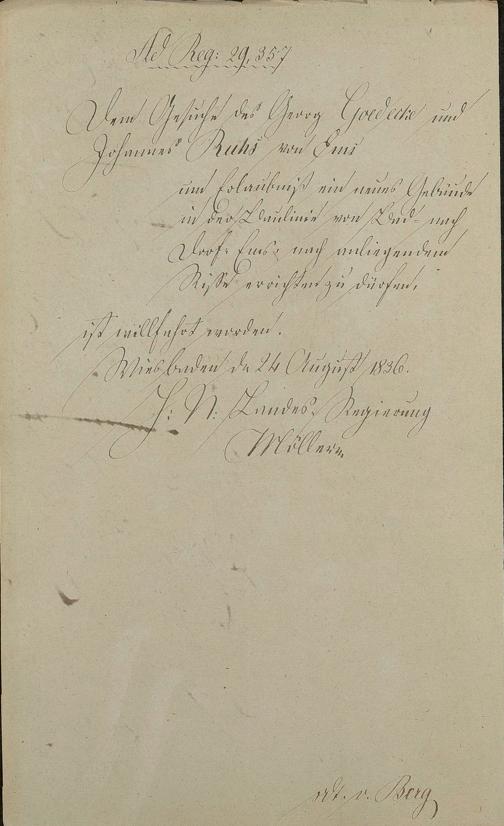 Ad Reg: 29,357
Dem Gesuche des Georg Goedecke und
Johannes Ruhs von Ems
um Erlaubniß ein neues Gebäude
in der Baulinie von Bad- nach
Dorf-Ems, nach anliegendem
Risse errichten zu dürfen,
ist willfahrt worden.
Wiesbaden d. 24 August 1836.
H: N: Landes-Regierung
Möller
vdt. v. Berg